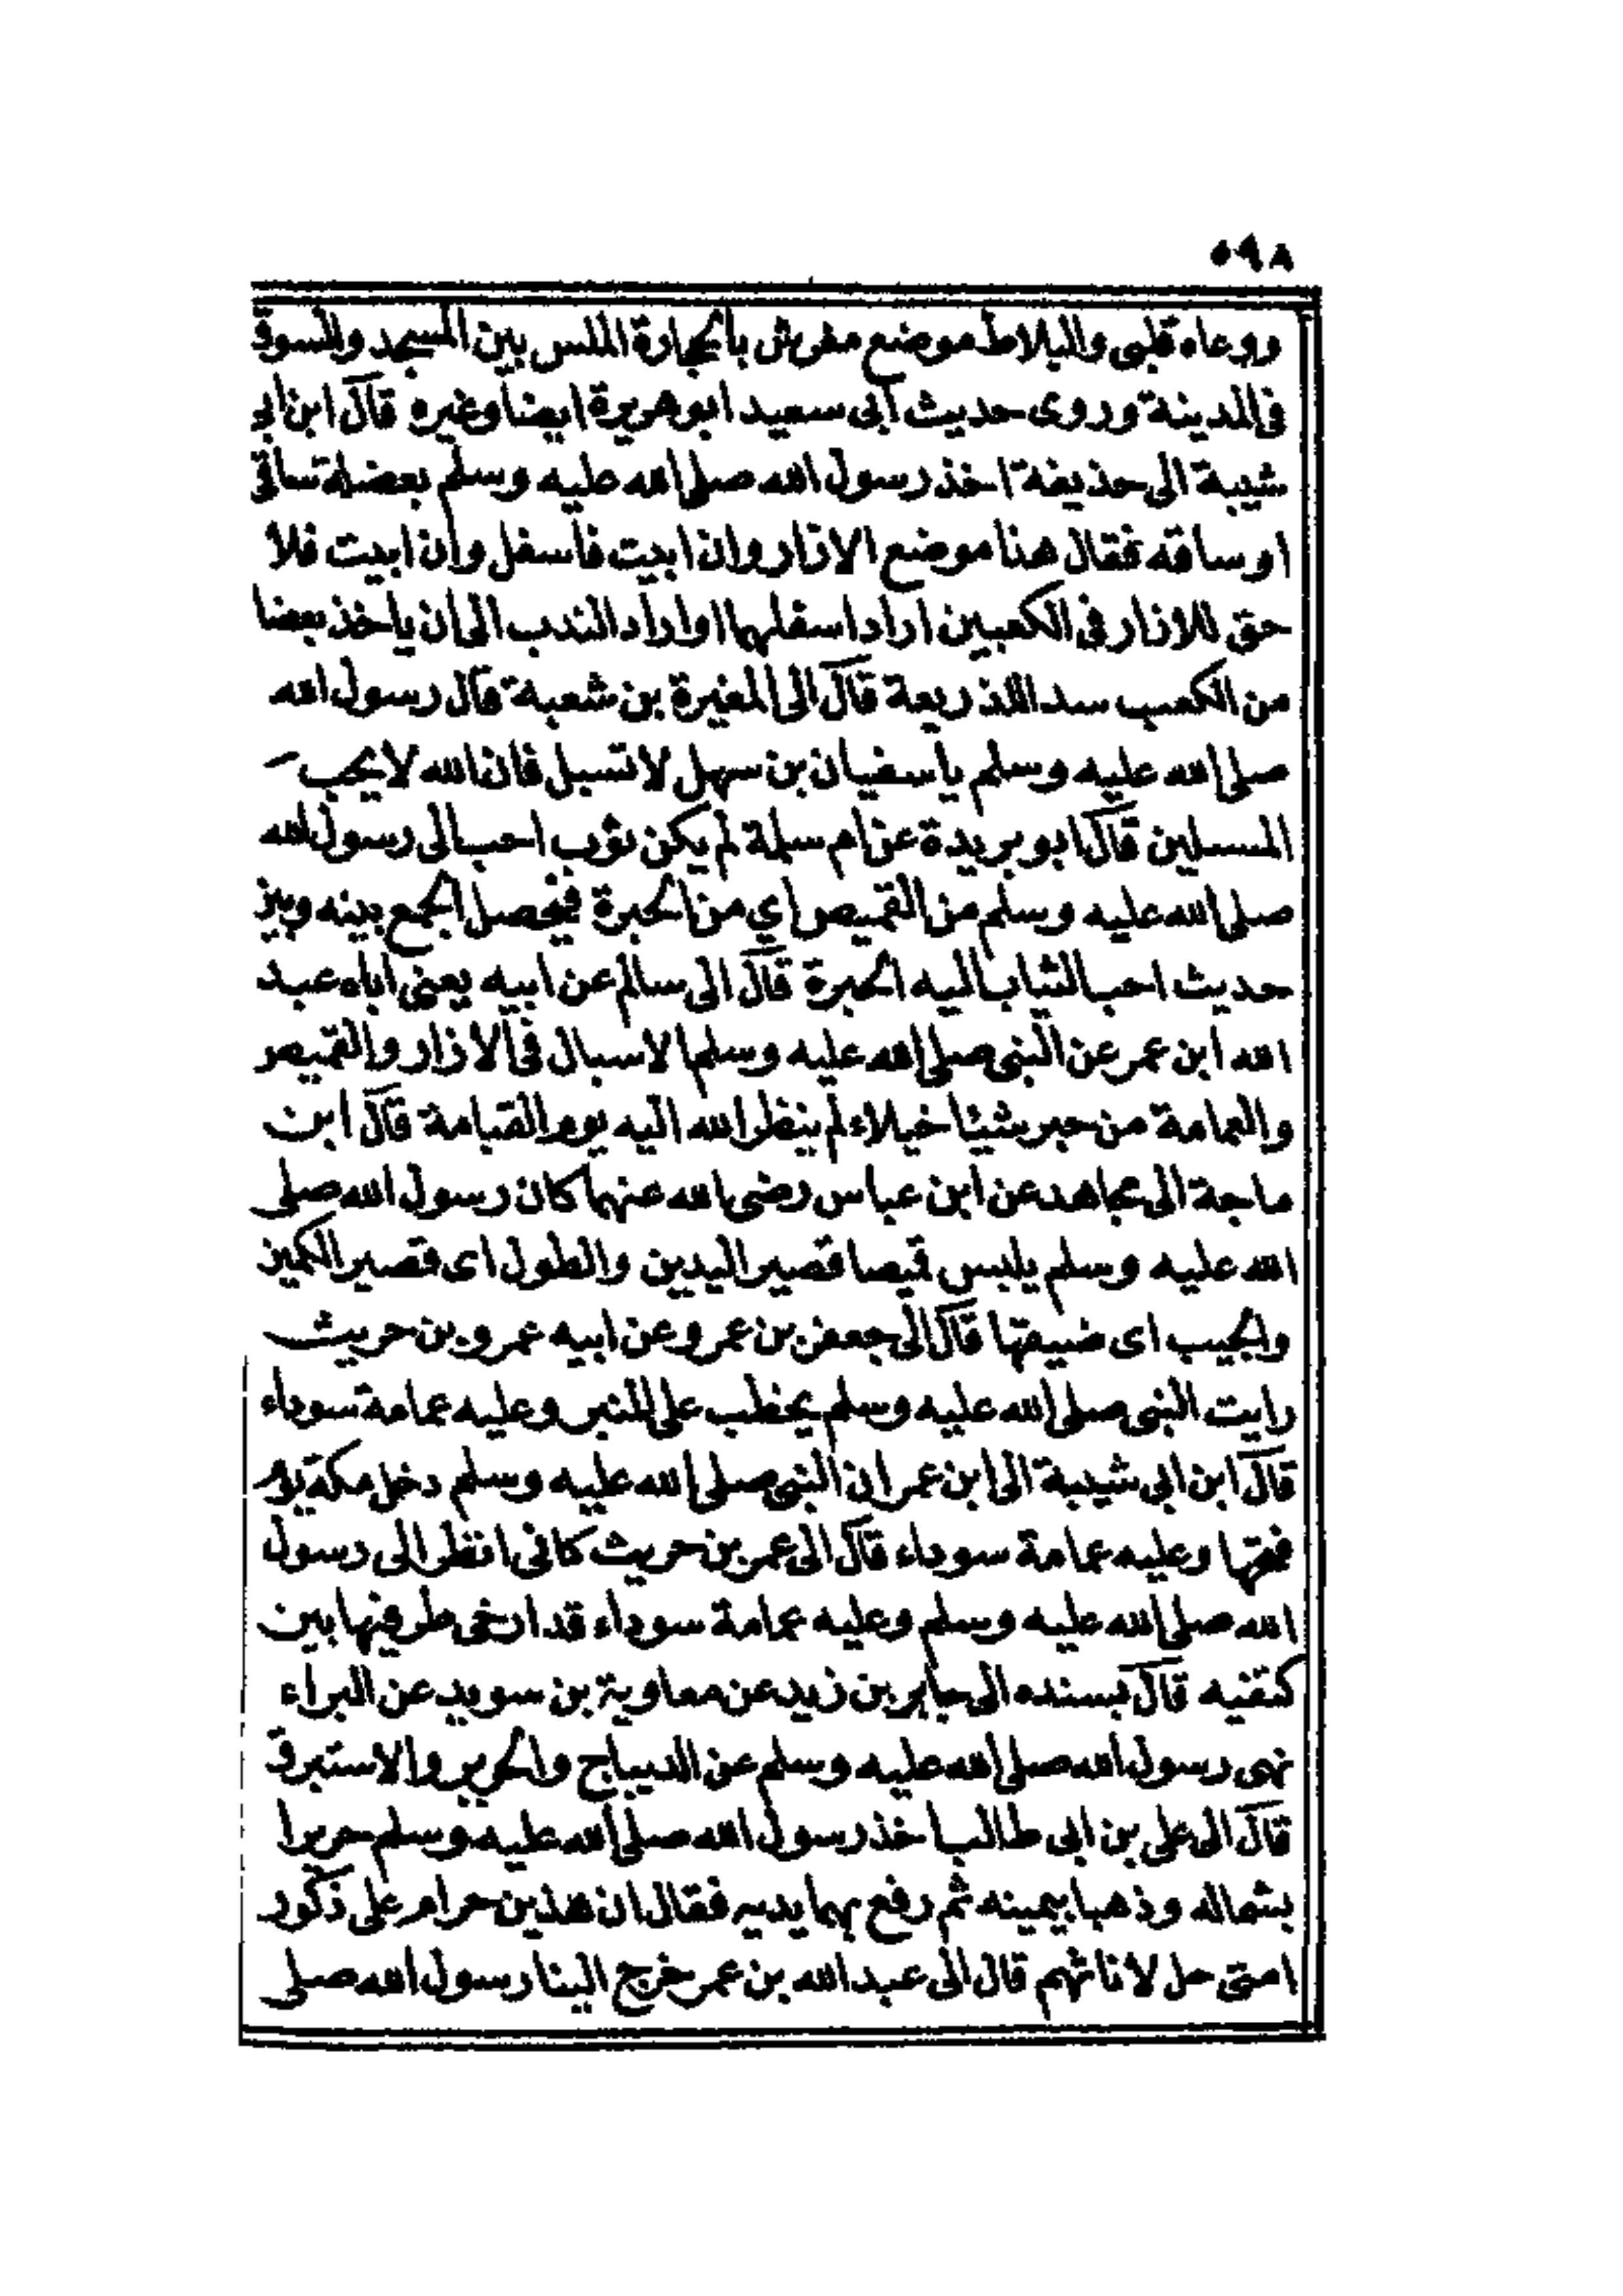 ٥٩٨
ووعاه قلبى والبلاط موضع مفرش بالحجارة الملس بين المسجد والسوق
فى المدينة وروى حديث أبى سعيد ابو هريرة ايضا وغيره قال ابن ابى
شيبة الى حذيفة اخذ رسول الله صلى الله عليه وسلم بعضلة ساقى
او ساقه فقال هنا موضع الازار وان ابيت فأسفل وان ابيت فلا
حق للازار فى الكعبين اراد اسفلهما او اراد الندب الى أن يأخذ بعضا
من الكعب سدا للذريعة قال الى المغيرة بن شعبة قال رسول الله
صلى الله عليه وسلم ياسفيان بن سهل لا تسبل فان الله لا يحب
المسبلين قال ابو بريدة عن ام سلمة لم يكن ثوب احب الى رسول الله
صلى الله عليه وسلم من القميص اي من الحبرة فيحصل الجمع بينه وبين
حديث احب الثياب اليه الحبرة قال الى سالم عن ابيه يعنى اباه عبد
الله ابن عمر عن النبى صلى الله عليه وسلم الاسبال فى الازار والقميص
والعمامة من جر شيئا خيلاء لم ينظر الله اليه يوم القيامة قال ابن
ماجة الى مجاهد عن ابن عباس رضى الله عنهما كان رسول الله صلى
الله عليه وسلم يلبس قميصا قصير اليدين والطول اى قصير الكمين
والجيب اى ضيقها قال الى جعفر بن عمرو عن ابيه عمرو بن حريث
رايت النبى صلى الله عليه وسلم يخطب على المنبر وعليه عمامة سوداء
قال ابن ابى شيبة الى ابن عمر ان النبى صلى الله عليه وسلم دخل مكة يوم
فتحها وعليه عمامة سوداء قال الى عمر بن حريث كانى انظر الى رسول
الله صلى الله عليه وسلم وعليه عمامة سوداء قد ارخى طرفيها بين
كتفيه قال بسنده الى جابر بن زيد عن معاوية بن سويد عن البراء
نهى رسول الله صلى الله عليه وسلم عن الديباج والحرير والاستبرق
قال الى على بن ابى طالب اخذ رسول الله صلى الله عليه وسلم حريرا
بشماله وذهبا بيمينه ثم رفع بهما يديه فقال ان هذين حرام على ذكور
امتى حل لاناثهم قال الى عبد الله بن عمر خرج الينا رسول الله صلى